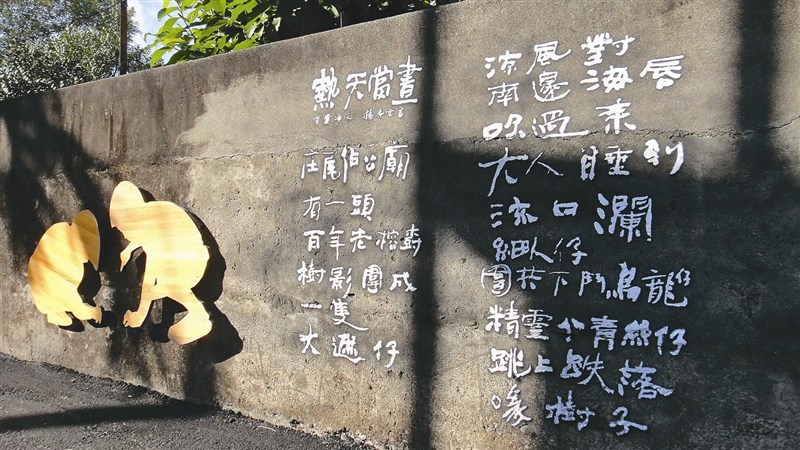 熱天當晝
庄尾伯公廟
有一頭
百年老榕樹
樹影團成
一隻
大遮仔
涼風對
南邊海唇
吹過來
大人睡到
流口瀾
細人仔
圍共下鬥烏龍仔
精靈个青絲仔
跳上跌落
喙樹子